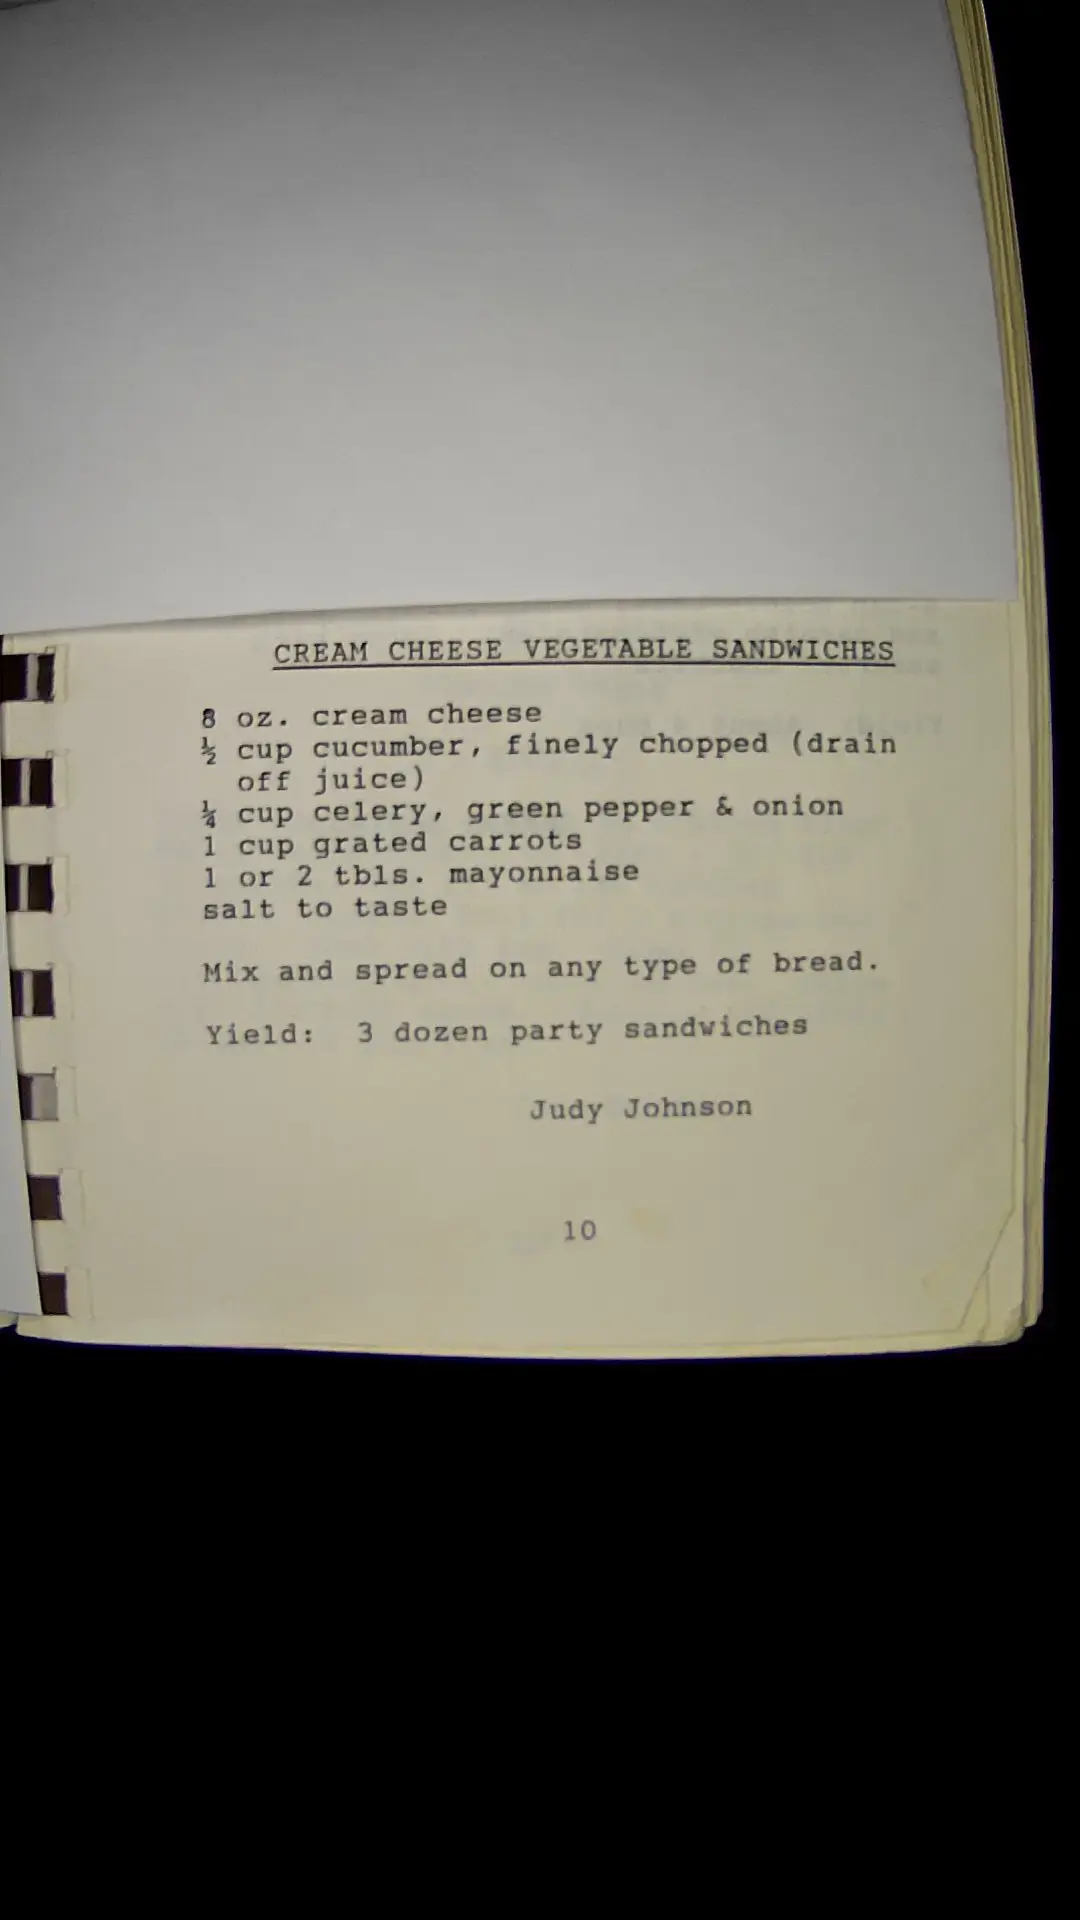 CREAM CHEESE VEGETABLE SANDWICHES
8 oz. cream cheese
½ cup cucumber, finely chopped (drain
off juice)
¼ cup celery, green pepper & onion
1 cup grated carrots
1 or 2 tbls. mayonnaise
salt to taste
Mix and spread on any type of bread.
Yield: 3 dozen party sandwiches
Judy Johnson
10